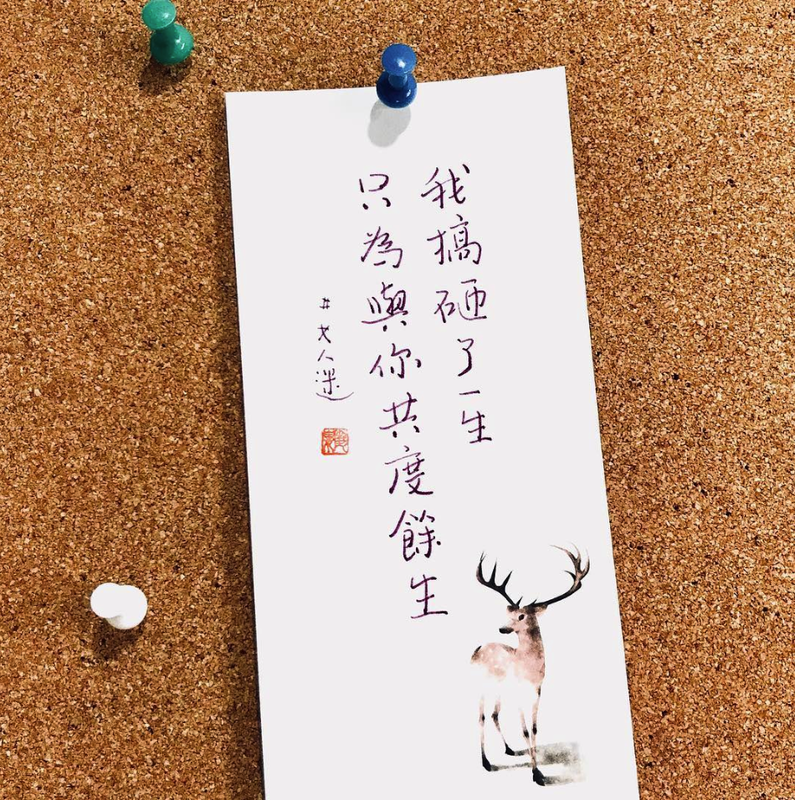 我搞砸了一生
只為與你共度餘生
#大人迷